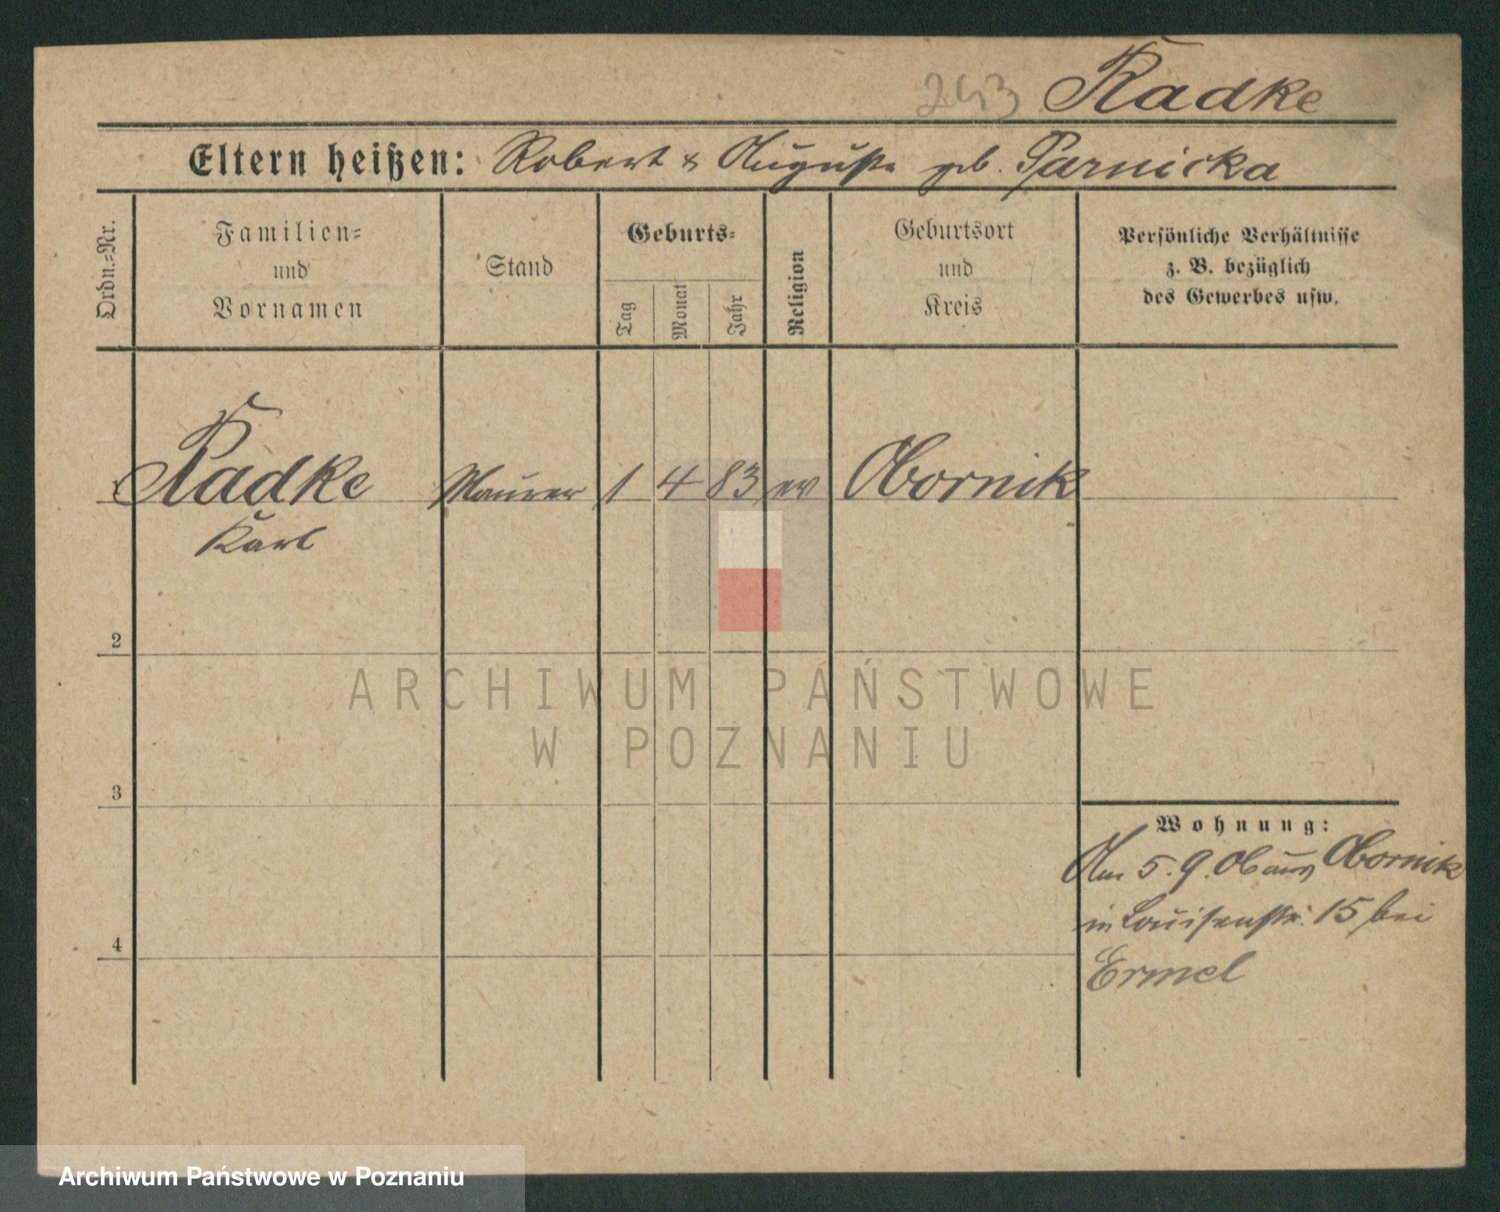 243 Radke
Eltern heißen: Robert & Auguste geb. Parnicka
Ordn.-Nr.
Familien-
und
Vornamen
Stand
Geburts-
Tag
Monat
Jahr
Religion
Geburtsort
und
Kreis
Persönliche Verhältnisse
z. B. bezüglich
des Gewerbes usw.
Radke Maurer 1 4 83 ev Obornik
Karl
2
3
4
Wohnung:
Am 5. 9. 06 aus Obornik
in Louisenstr. 15 bei
Ermel
ARCHIWUM PAŃSTWOWE
W POZNANIU
Archiwum Państwowe w Poznaniu